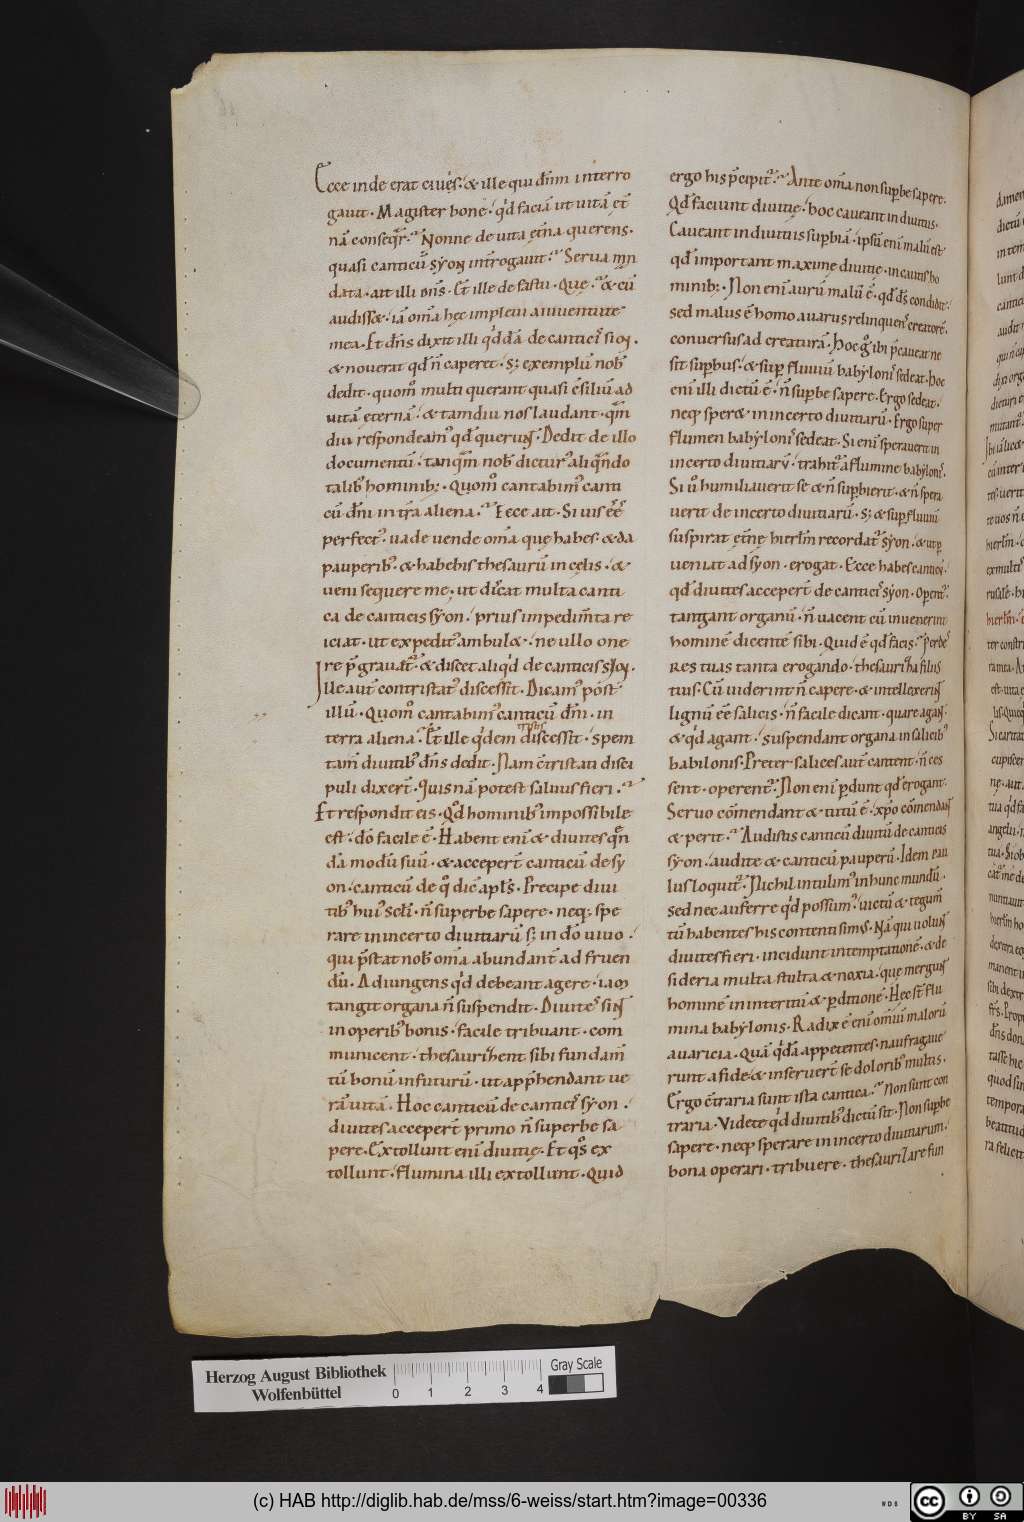 Ecce inde erat ciuęs· & ille qui dn̄m interro
gauit· Magister bone· qḋ faciā ut uitā et̄
nā conseqr̄· Nonne de uita etn̄a querens·
quasi canticū syon intr̄rogauit· Serua mn
data· ait illi dn̄s· Et ille de fastu· Quę· & cū
audiss&· iā om̄a hęc impleui a iuuentute
mea· Et dn̄s dixit illi qḋdā de canticis sion·
& nouerat qḋ n̄ caperet· s; exemplū nob̄
dedit· quom̊ multi querant quasi c̄siliū ad
uitā ęternā· & tamdiu nos laudant· qm̄
diu respondeam' qḋ querunt· Dedit de illo
documentū· tanqm̄ nob̄ dictur' aliqn̄do
talib' hominib;· Quom̊ cantabim' canti
cū dn̄i in tr̄a aliena· Ecce ait· Si uis ēē
perfect'· uade uende om̄a quę habes· & da
pauperib'· & habebis thesaurū in cęlis· &
ueni sequere me· ut dicat multa canti
ca de canticis syon· prius impedim̄ta re
iciat· ut expedit' ambul&· ne ullo one
re p̄grauat'· & discet aliqḋ de canticis sion·
Ille aut̄ contristat' discessit· Dicam' post
illū· Quom̊ cantabim' canticū dn̄i· in
terra aliena· Et ille qḋem tristis discessit· spem
tam̄ diuitib' dn̄s dedit· Nam c̄tristati disci
puli dixer̄t· Quis nā potest saluus fieri·
Et respondit eis· Qḋ hominib' impossibile
est· dō facile ē· Habent enī & diuites qn̄
dā modū suū· & acceper̄t canticū de sy
on· canticū de q̊ dic̄ apl̄s· Precipe diui
tib' hui' scl̄i· n̄ superbe sapere· neq; spe
rare in incerto diuitiarū s; in dō uiuo·
qui p̄stat nob̄ om̄a abundant̄ ad fruen
dū· Adiungens qḋ debeant agere· iam
tangit organa n̄ suspendit· Diuites sint
in operib' bonis· facile tribuant· com
municent· thesaurizent sibi fundam̄
tū bonū in futurū· ut app̄hendant ue
rā uitā· Hoc canticū de canticis syon·
diuites acceper̄t primo n̄ superbe sa
pere· Extollunt enī diuitię· Et qs̊ ex
tollunt· flumina illi extollunt· Quid
ergo his p̄cipit'· Ante om̄a non supbe sapere·
Qḋ faciunt diuitię· hoc caueant in diuitiis·
Caueant in diuitiis supbiā· ipsū enī malū est
qḋ important maxime diuitię· incautis ho
minib;· Non enī aurū malū ē· qḋ ds̄ condidit·
sed malus ē homo auarus relinquens creatorē·
conuersus ad creaturā· Hoc g̊ ibi p̄caueat ne
sit supbus· & sup fluuiū babylonis sedeat· Hoc
enī illi dictū ē· n̄ supbe sapere· Ergo sedeat·
neq; sper& in incerto diuitiarū· Ergo super
flumen babylonis sedeat· Si enī sperauerit in
incerto diuitiarū· trahit' a flumine babylonis·
Si ů humiliauerit se & n̄ supbierit· & n̄ spera
uerit de incerto diuitiarū· s; & sup fluuiū
suspirat et̄nę hierlm̄ recordat' syon· & ut p
ueniat ad syon· erogat· Ecce habes canticū·
qḋ diuites acceper̄t de canticis syon· Opent'·
tangant organū· n̄ uacent cū inuenerint
hominē dicentē sibi· Quid ē qḋ facis· Perdis
res tuas tanta erogando· thesauriza filiis
tuis· Cū uiderint n̄ capere· & intellexerint
lignū ēē salicis· n̄ facile dicant· quare agant·
& qḋ agant· suspendant organa in salicib'
babilonis· Preter salices aut̄ cantent· n̄ ces
sent· operent'· Non enī pdunt qḋ erogant·
Seruo com̄endant & tutū ē· xpō com̄endant
& perit· Audistis canticū diuitū de canticis
syon· audite & canticū pauperū· Idem pau
lus loquit'· Nichil intulim' in hunc mundū·
sed nec auferre qḋ possum'· uictū & tegum̄
tū habentes his contenti sim'· Nā qui uolunt
diuites fieri· incidunt in temptationē· & de
sideria multa stulta & noxia· quę mergunt
hominē in interitū & pditionē· Hęc st̄ flu
mina babylonis· Radix ē enī omiū malorū
auaricia· Quā qḋā appetentes· naufragaue
runt a fide· & inseruer̄t se dolorib' multis·
Ergo c̄traria sunt ista cantica· Non sunt con
traria· Videte qḋ diuitib' dictū sit· Non supbe
sapere· neq; sperare in incerto diuitiarum·
bona operari· tribuere· thesaurizare fun
Herzog August Bibliothek
Wolfenbüttel
0 1 2 3 4
Gray Scale
(c) HAB http://diglib.hab.de/mss/6-weiss/start.htm?image=00336
cc BY SA